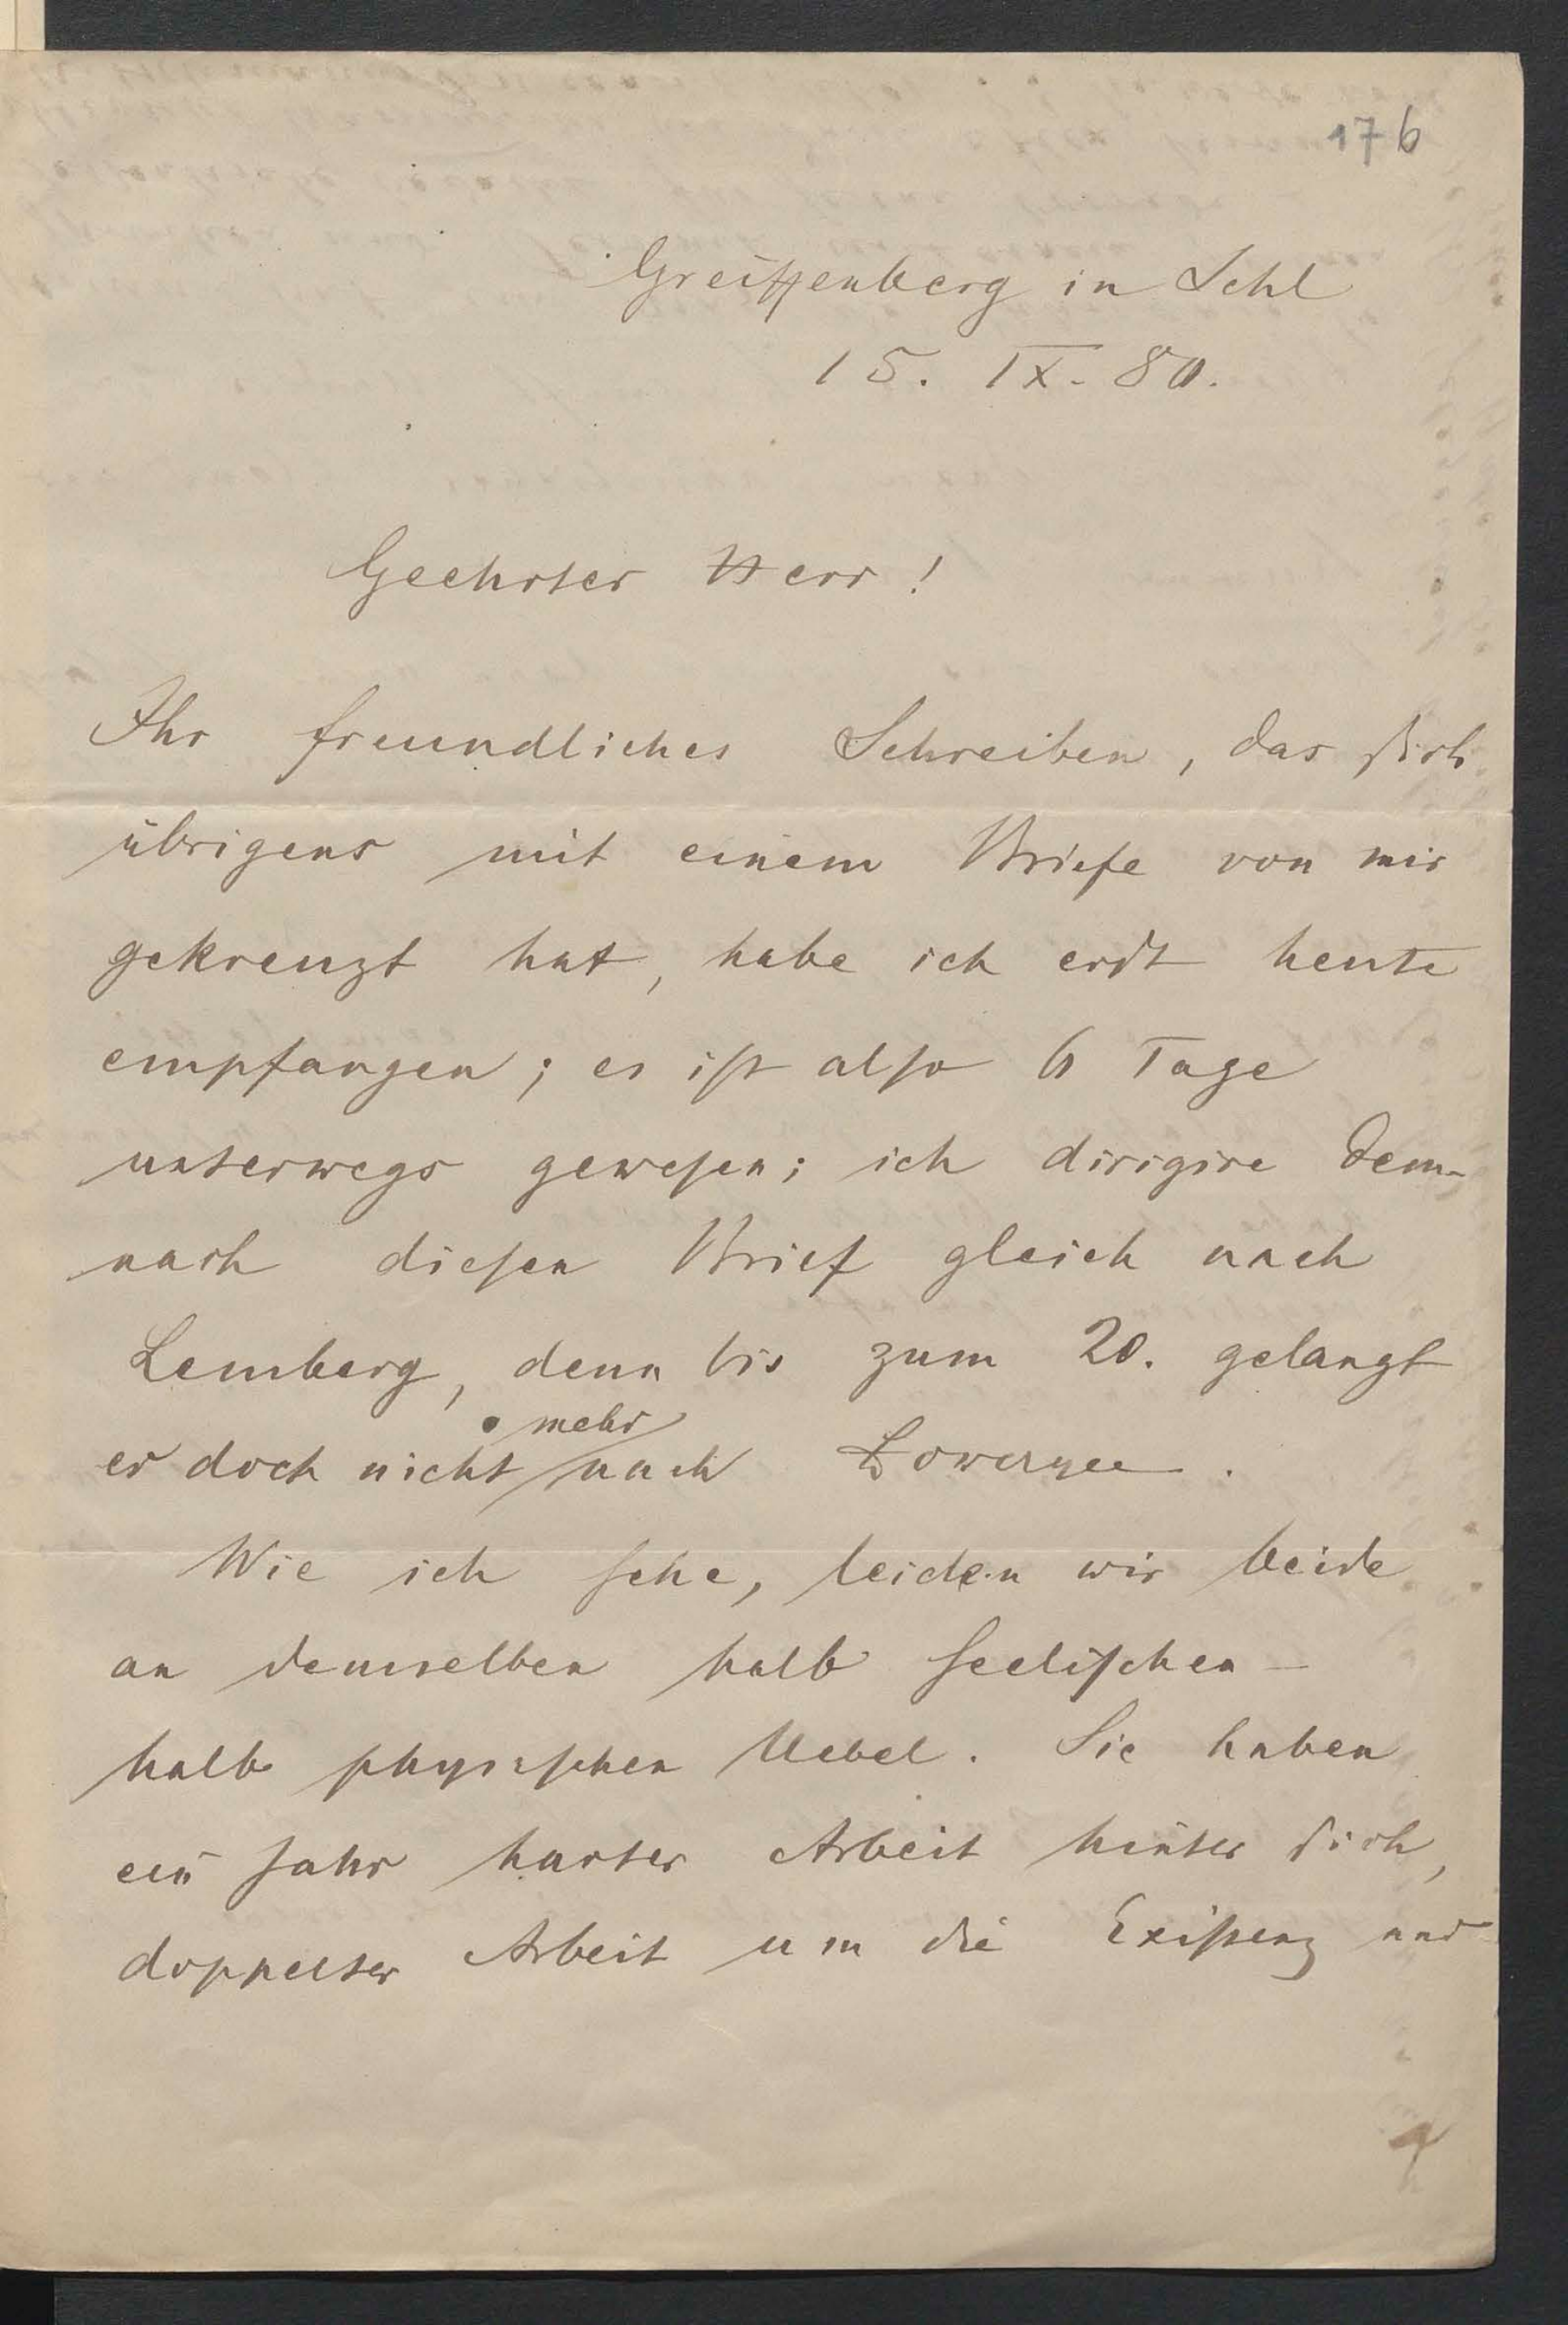 176
Greiffenberg in Schl
15. IX. 80.
Geehrter Herr!
Ihr freundliches Schreiben, das sich
übrigens mit einem Briefe von mir
gekreuzt hat, habe ich erst heute
empfangen; es ist also 6 Tage
unterwegs gewesen; ich dirigire dem-
nach diesen Brief gleich nach
Lemberg, denn bis zum 20. gelangt
mehr
er doch nicht nach .
Wie ich sehe, leiden wir beide
an demselben halb seelischen -
halb physischen Uebel. Sie haben
ein Jahr harter Arbeit hinter sich,
doppelter Arbeit um die Existenz und